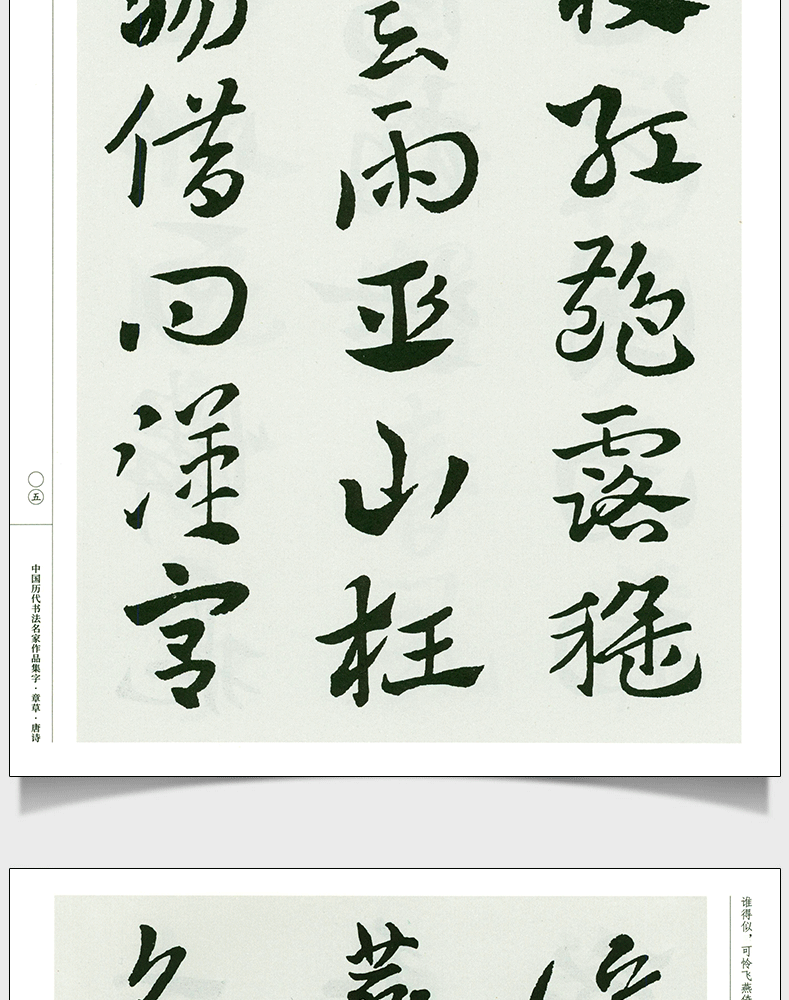 枝紅艷露凝
云雨巫山枉
腸借問漢宮
〇五
中国历代书法名家作品集字·章草·唐诗
谁得似，可怜飞燕倚
燕